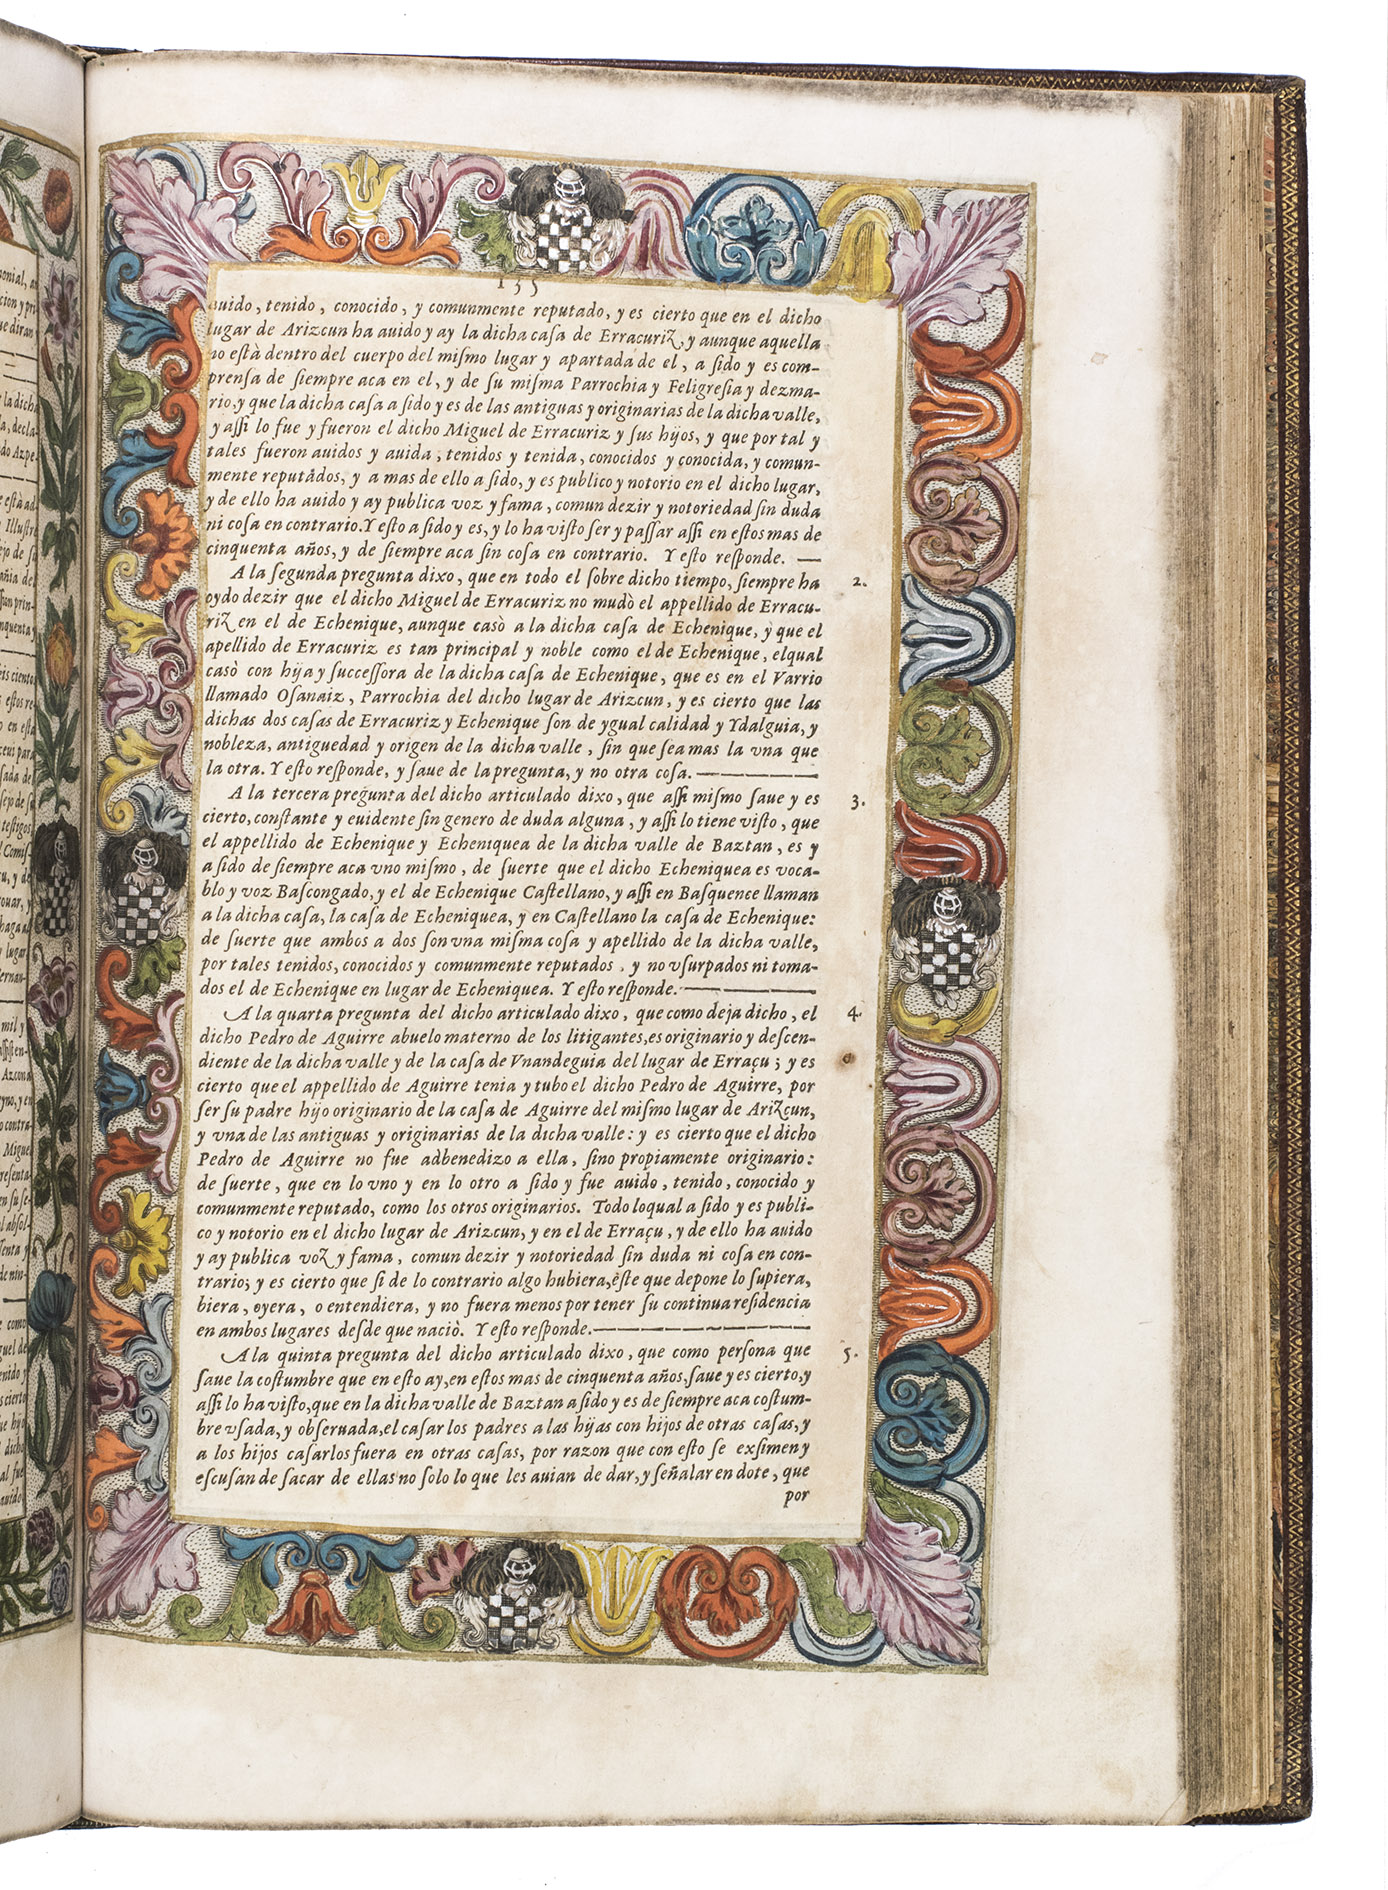 135
auido, tenido, conocido, y comunmente reputado, y es cierto que en el dicho
lugar de Arizcun ha auido y ay la dicha casa de Erracuriz, y aunque aquella
no està dentro del cuerpo del mismo lugar y apartada de el, a sido y es com-
prensa de siempre aca en el, y de su misma Parrochia y Feligresia y dezma-
rio, y que la dicha casa a sido y es de las antiguas y originarias de la dicha valle,
y assi lo fue y fueron el dicho Miguel de Erracuriz y sus hijos, y que por tal y
tales fueron auidos y auida, tenidos y tenida, conocidos y conocida, y comun-
mente reputados, y a mas de ello a sido, y es publico y notorio en el dicho lugar,
y de ello ha auido y ay publica voz y fama, comun dezir y notoriedad sin duda
ni cosa en contrario. Y esto a sido y es, y lo ha visto ser y passar assi en estos mas de
cinquenta años, y de siempre aca sin cosa en contrario. Y esto responde. —
A la segunda pregunta dixo, que en todo el sobre dicho tiempo, siempre ha 2.
oydo dezir que el dicho Miguel de Erracuriz no mudò el appellido de Erracu-
riz en el de Echenique, aunque casò a la dicha casa de Echenique, y que el
apellido de Erracuriz es tan principal y noble como el de Echenique, elqual
casò con hija y successora de la dicha casa de Echenique, que es en el Varrio
llamado Osanaiz, Parrochia del dicho lugar de Arizcun, y es cierto que las
dichas dos casas de Erracuriz y Echenique son de ygual calidad y Ydalguia, y
nobleza, antiguedad y origen de la dicha valle, sin que sea mas la vna que
la otra. Y esto responde, y saue de la pregunta, y no otra cosa. —
A la tercera pregunta del dicho articulado dixo, que assi mismo saue y es 3.
cierto, constante y euidente sin genero de duda alguna, y assi lo tiene visto, que
el appellido de Echenique y Echeniquea de la dicha valle de Baztan, es y
a sido de siempre aca vno mismo, de suerte que el dicho Echeniquea es voca-
blo y voz Bascongado, y el de Echenique Castellano, y assi en Basquence llaman
a la dicha casa, la casa de Echeniquea, y en Castellano la casa de Echenique:
de suerte que ambos a dos son vna misma cosa y apellido de la dicha valle,
por tales tenidos, conocidos y comunmente reputados, y no vsurpados ni toma-
dos el de Echenique en lugar de Echeniquea. Y esto responde. —
A la quarta pregunta del dicho articulado dixo, que como deja dicho, el 4.
dicho Pedro de Aguirre abuelo materno de los litigantes, es originario y descen-
diente de la dicha valle y de la casa de Vnandeguia del lugar de Erraçu; y es
cierto que el appellido de Aguirre tenia y tubo el dicho Pedro de Aguirre, por
ser su padre hijo originario de la casa de Aguirre del mismo lugar de Arizcun,
y vna de las antiguas y originarias de la dicha valle: y es cierto que el dicho
Pedro de Aguirre no fue adbenedizo a ella, sino propiamente originario:
de suerte, que en lo vno y en lo otro a sido y fue auido, tenido, conocido y
comunmente reputado, como los otros originarios. Todo loqual a sido y es publi-
co y notorio en el dicho lugar de Arizcun, y en el de Erraçu, y de ello ha auido
y ay publica voz y fama, comun dezir y notoriedad sin duda ni cosa en con-
trario; y es cierto que si de lo contrario algo hubiera, este que depone lo supiera,
biera, oyera, o entendiera, y no fuera menos por tener su continua residencia
en ambos lugares desde que naciò. Y esto responde. —
A la quinta pregunta del dicho articulado dixo, que como persona que 5.
saue la costumbre que en esto ay, en estos mas de cinquenta años, saue y es cierto, y
assi lo ha visto, que en la dicha valle de Baztan a sido y es de siempre aca costum-
bre vsada, y obseruada, el casar los padres a las hijas con hijos de otras casas, y
a los hijos casarlos fuera en otras casas, por razon que con esto se eximen y
escusan de sacar de ellas no solo lo que les auian de dar, y señalar en dote, que
por